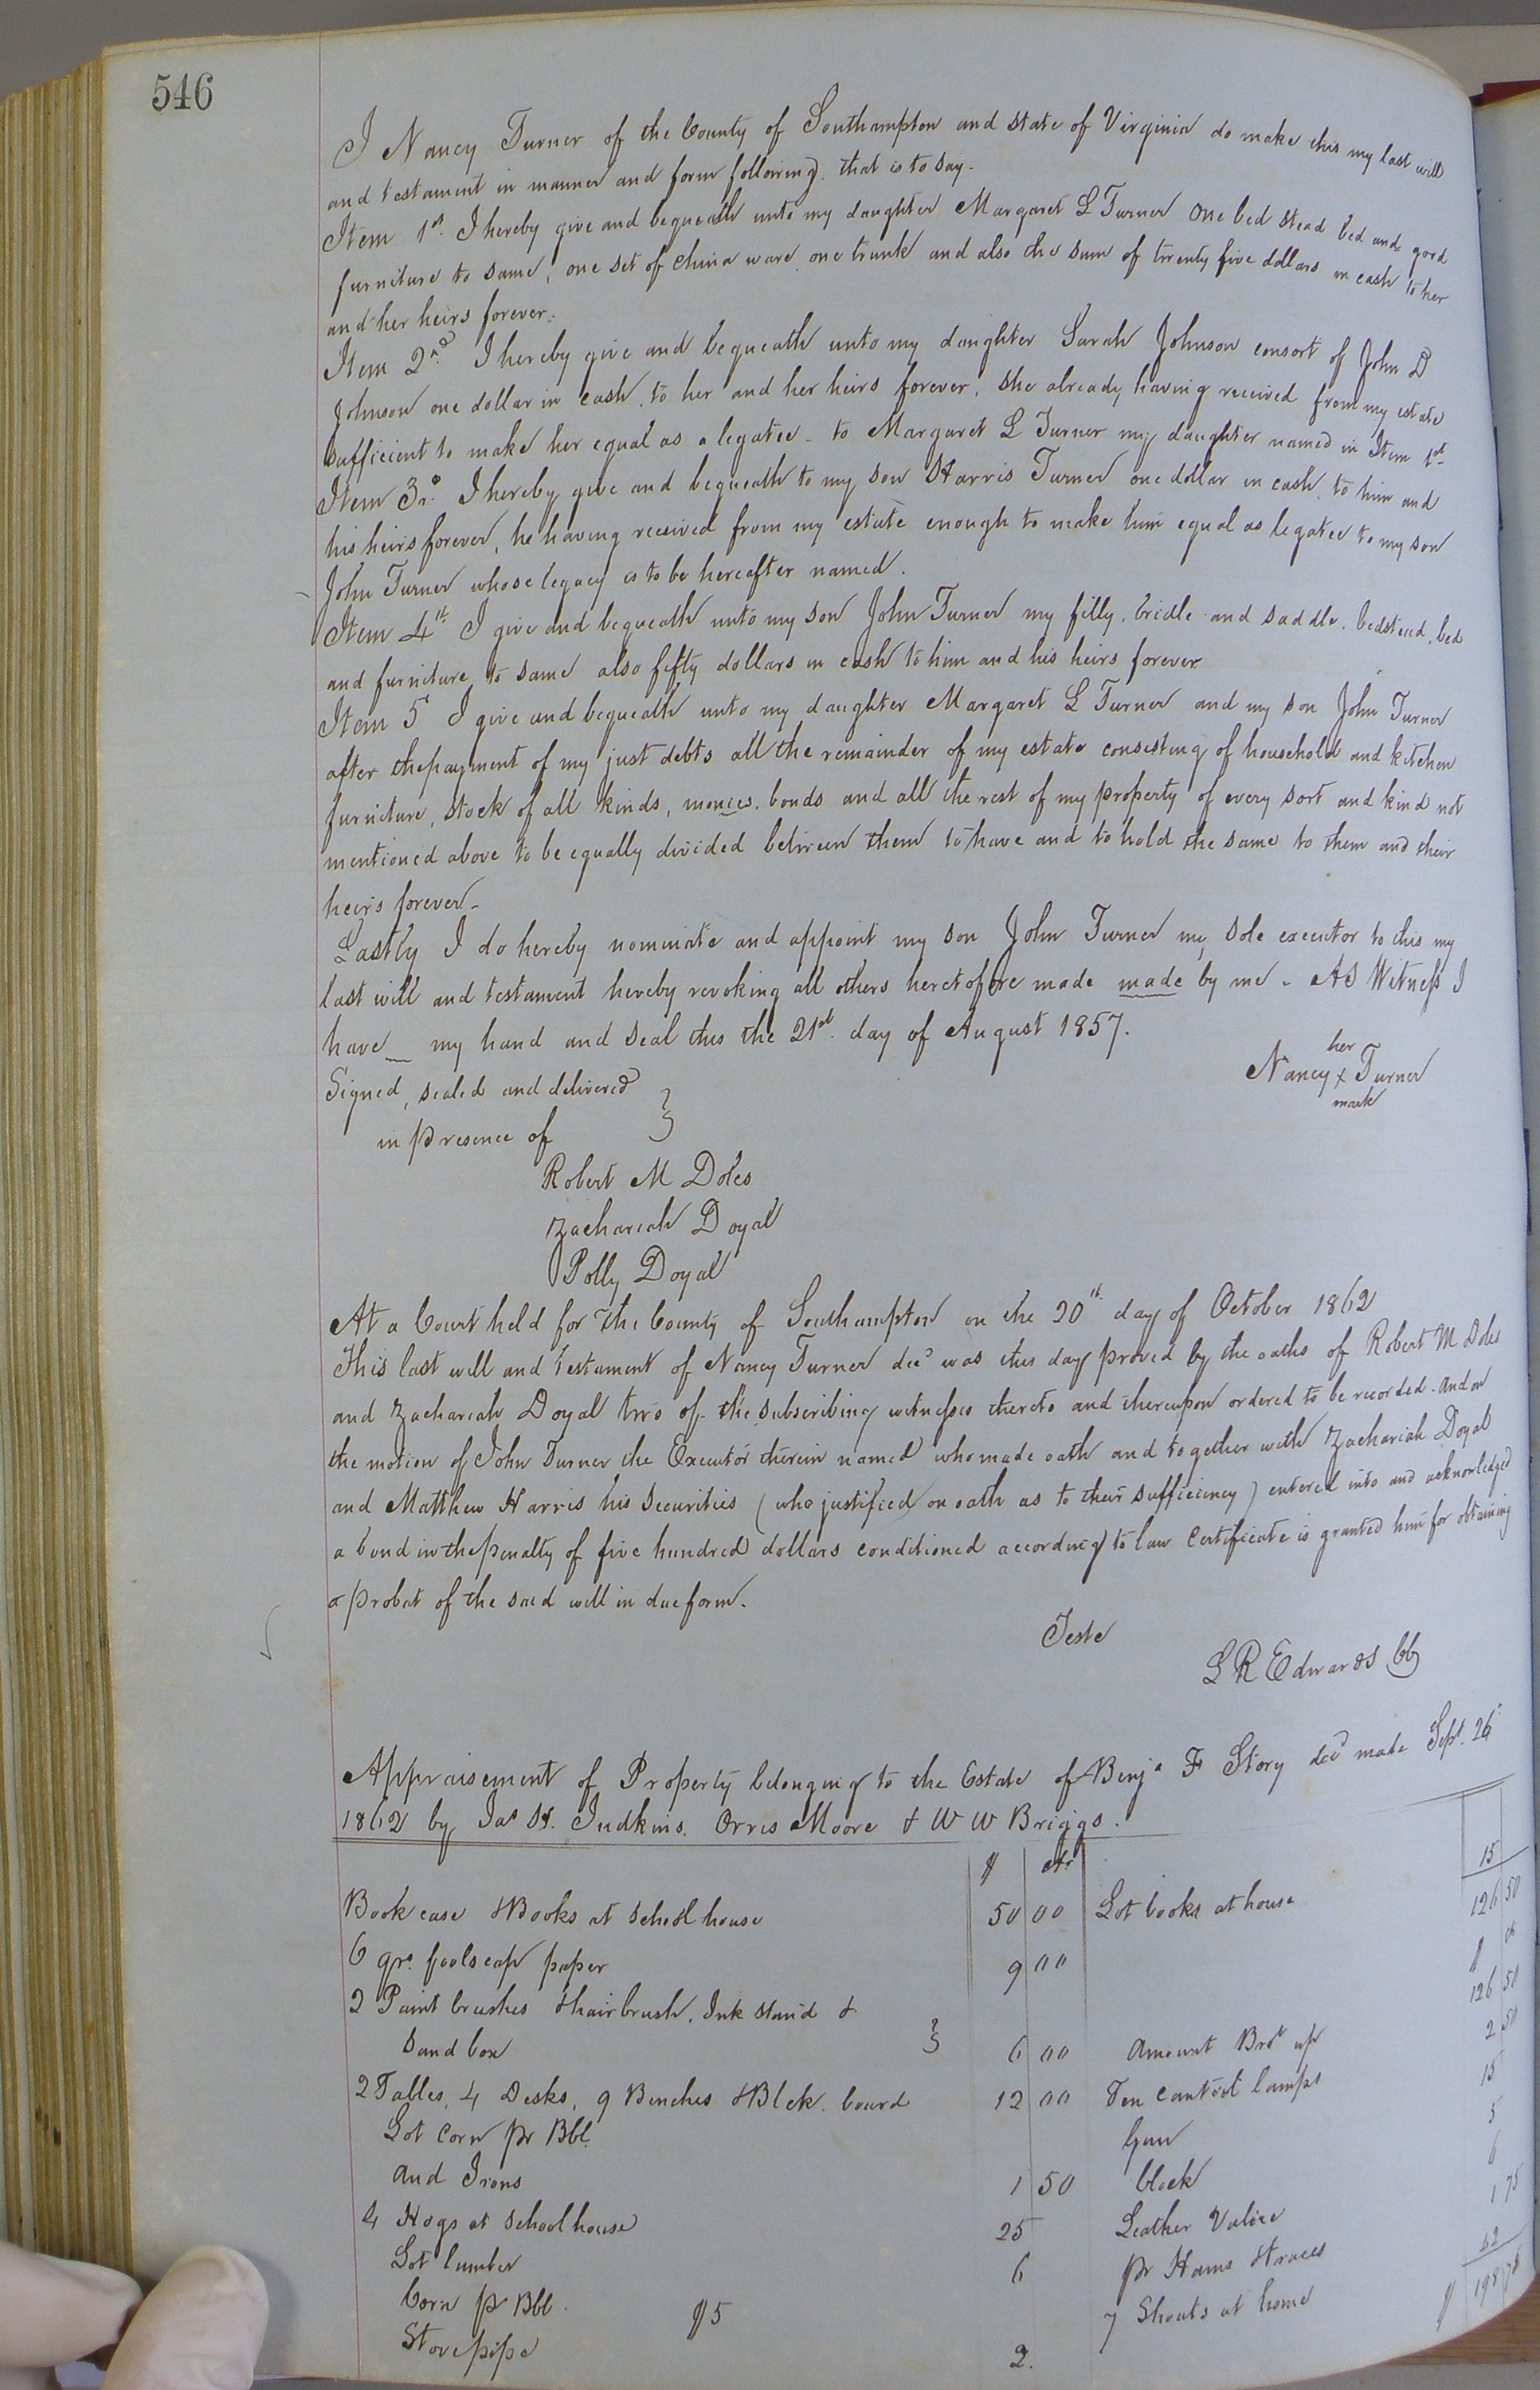 546
I Nancy Turner of the County of Southampton and state of Virginia do make this my last will
and testament in manner and form following. that is to say.
Item 1st. I hereby give and bequeath unto my daughter Margaret L Turner one bed stead bed and good
furniture to same, one set of china ware, one trunk and also the sum of twenty five dollars in cash to her
and her heirs forever.
Item 2nd I hereby give and bequeath unto my daughter Sarah Johnson consort of John D
Johnson one dollar in cash, to her and her heirs forever, she already having received from my estate
sufficient to make her equal as a legatee - to Margaret L Turner my daughter named in Item 1st-
Item 3rd. I hereby give and bequeath to my son Harris Turner one dollar in cash, to him and
his heirs forever, he having received from my estate enough to make him equal as legatee to my son
John Turner whose legacy is to be hereafter named.
Item 4th I give and bequeath unto my son John Turner my filly, bridle and saddle, bedstead, bed
and furniture to same also fifty dollars in cash to him and his heirs forever
Item 5 I give and bequeath unto my daughter Margaret L Turner and my son John Turner
after the payment of my just debts all the remainder of my estate consisting of household and kitchen
furniture, stock of all kinds, monies, bonds and all the rest of my property of every sort and kind not
mentioned above to be equally divided between them to have and to hold the same to them and their
heirs forever-
Lastly I do hereby nominate and appoint my son John Turner my sole executor to this my
last will and testament hereby revoking all others heretofore made made by me - As Witness I
have _ my hand and seal this the 21st. day of August 1857.
her
Nancy x Turner
mark
Signed, sealed and delivered }
in presence of
Robert M Doles
Zachariah Doyal
Polly Doyal
At a Court held for the County of Southampton on the 20th day of October 1862
This last will and testament of Nancy Turner decd was this day proved by the oaths of Robert M Doles
and Zachariah Doyal two of the subscribing witnesses thereto and thereupon ordered to be recorded. And on
the motion of John Turner the Executor therein named who made oath and together with Zachariah Doyal
and Matthew Harris his securities (who justified on oath as to their sufficiency) entered into and acknowledged
a bond in the penalty of five hundred dollars conditioned according to law Certificate is granted him for obtaining
a probat of the said will in due form.
Teste
L R Edwards CC
Appraisement of Property belonging to the Estate of Benja F Story decd made Sept. 26
1862 by Jas Judkins. Orris Moore & W W Briggs.
$ cts
Book case & Books at School house 50 00 Lot books at house 15
126 50
6 qrs. foolscap paper 9 00
2 Paint brushes & hair brush, Ink stand & } $ cts
Sand box 6 00 Amount Brot up 126 50
2 Tables, 4 Desks, 9 Benches & Blck. board 12 00 Ten lamps 2 50
Lot Corn pr Bbl. Gun 15
And Irons 1 50 Clock 5
4 Hogs at School house 25 Leather Valise 6
Lot lumber 6 pr Hams & traces 1 75
Corn pr Bbl. $5 7 Shoats at home 42
Stovepipe 2. $ 198 75